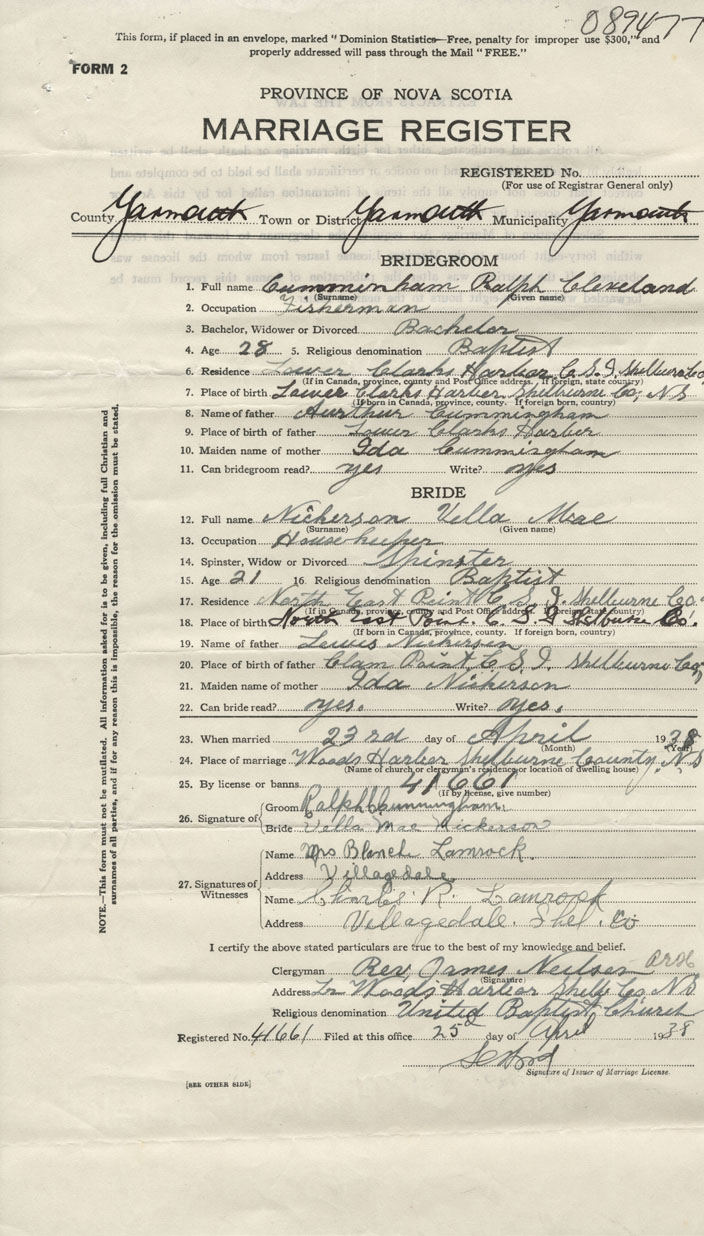 089477
This form, if placed in an envelope, marked "Dominion Statistics—Free, penalty for improper use $300," and
properly addressed will pass through the Mail "FREE."
FORM 2
PROVINCE OF NOVA SCOTIA
MARRIAGE REGISTER
REGISTERED No.
(For use of Registrar General only)
County Yarmouth Town or District Yarmouth Municipality Yarmouth
BRIDEGROOM
1. Full name Cumminham Ralph Cleveland
(Surname) (Given name)
2. Occupation Fisherman
3. Bachelor, Widower or Divorced Bachelor
4. Age 28 5. Religious denomination Baptist
6. Residence Lower Clarks Harbor C. S. I. Shelburne Co
(If in Canada, province, county and Post Office address. If foreign, state country)
7. Place of birth Lower Clarks Harbor Shelburne Co, NS
(If born in Canada, province, county. If foreign born, country)
8. Name of father Aurthur Cummingham
9. Place of birth of father Lower Clarks Harbor
10. Maiden name of mother Ida Cummingham
11. Can bridegroom read? yes Write? yes
BRIDE
12. Full name Nickerson Vella Mae
(Surname) (Given name)
13. Occupation Housekeeper
14. Spinster, Widow or Divorced Spinster
15. Age 21 16. Religious denomination Baptist
17. Residence North East Point C. S. I. Shelburne Co.
(If in Canada, province, county and Post Office address. If foreign, state country)
18. Place of birth North East Point. C. S. I. Shelburne Co.
(If born in Canada, province, county. If foreign born, country)
19. Name of father Lewis Nickerson
20. Place of birth of father Clam Point C. S. I. Shelburne Co,
21. Maiden name of mother Ida Nickerson
22. Can bride read? yes. Write? yes.
23. When married 23rd day of April 1938
(Month) (Year)
24. Place of marriage Woods Harbor Shelburne County, N.S
(Name of church or clergyman's residence or location of dwelling house)
25. By license or banns 41661
(If by license, give number)
26. Signature of Groom Ralph Cunningham.
Bride Vella Mae Nickerson
27. Signatures of Witnesses Name Mrs Blanch Lamrock.
Address Villagedale
Name Charles R. Lamrock
Address Villagedale. Shel. Co
I certify the above stated particulars are true to the best of my knowledge and belief.
Clergyman Rev. James Neilsen
(Signature)
Address Lr Woods Harbor Shelb Co. N S
Religious denomination United Baptist Church
Registered No. 41661 Filed at this office 25 day of April 1938
Signature of Issuer of Marriage License.
[SEE OTHER SIDE]
NOTE.—This form must not be mutilated. All information asked for is to be given, including full Christian and
surnames of all parties, and if for any reason this is impossible, the reason for the omission must be stated.